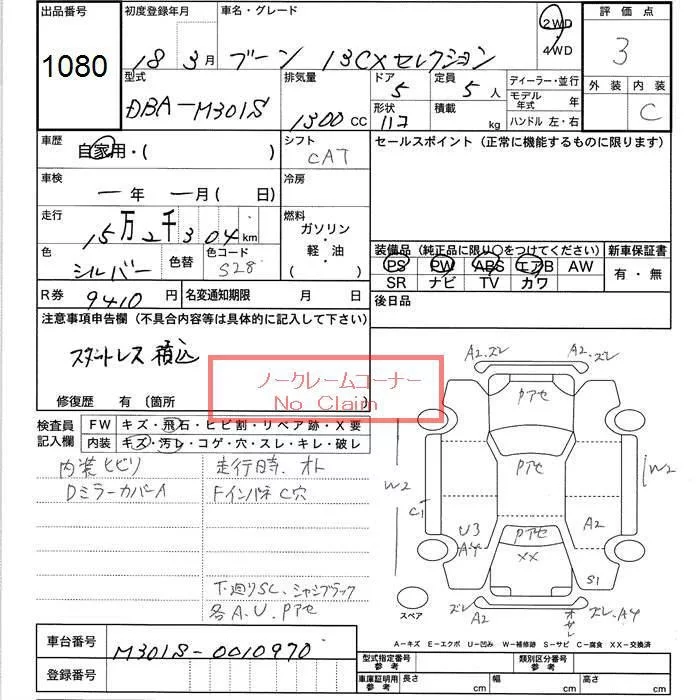 出品番号 初度登録年月 車名・グレード 2WD・4WD 評価点
1080 18 3月 ブーン 1.3CXセレクション 3
型式 排気量 ドア 定員 ディーラー・並行 外装 内装
DBA-M301S 1300 CC 5 5人 モデル年式 年
形状 積載 kg ハンドル 左・右 C
車歴 自家用・( ) シフト CAT セールスポイント (正常に機能するものに限ります)
車検 ー年ー月( 日) 冷房
走行 15万2千304km 燃料 ガソリン・軽・油( )
色 シルバー 色替 色コード S28
装備品 (純正品に限り〇をつけてください) 新車保証書
PS PW ABS エアB AW 有・無
SR ナビ TV カワ
R券 9410円 名変通知期限 月 日 後日品
注意事項申告欄 (不具合内容等は具体的に記入して下さい)
スタットレス 積込
ノークレームコーナー
No Claim
修復歴 有 〔箇所
検査員記入欄 FW キズ・飛石・ヒビ割・リペア跡・X要
内装 キズ・汚レ・コゲ・穴・スレ・キレ・破レ
内装ヒビリ 走行時、オト
DミラーカバーA Fインパネ C穴
下廻りSC、シャシブラック
各A.U.Pアセ
A2.ズレ A2.ズレ
Pアセ
Pアセ
W2 W2
C1
U3 A4 Pアセ A2
XX
S1
スペア ズレ A2 オサレ ズレ.A4
A-キズ E-エクボ U-凹み W-補修跡 S-サビ C-腐食 XX-交換済
車台番号 M301S-0010970
登録番号
型式指定番号参考 類別区分番号参考
車庫証明用参考 長さ cm 幅 cm 高さ cm